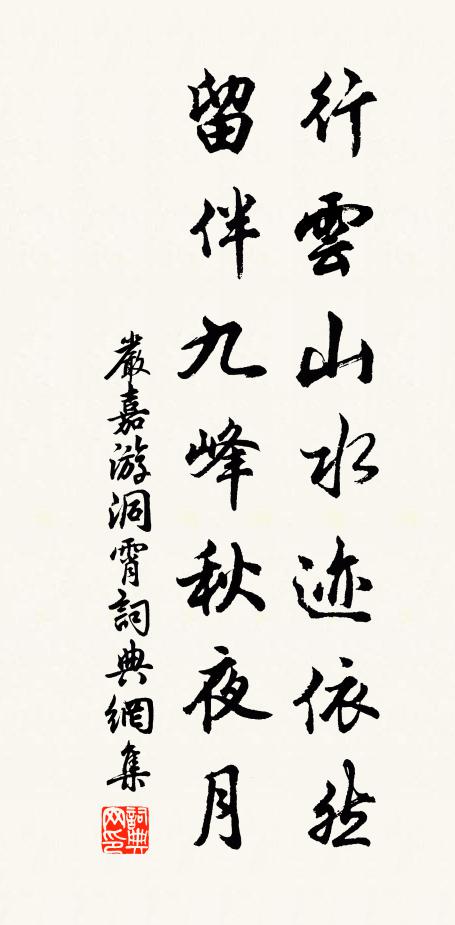 行雲山水迹依然
留伴九峰秋夜月
嚴嘉游洞霄詞典網集
詞典
网印